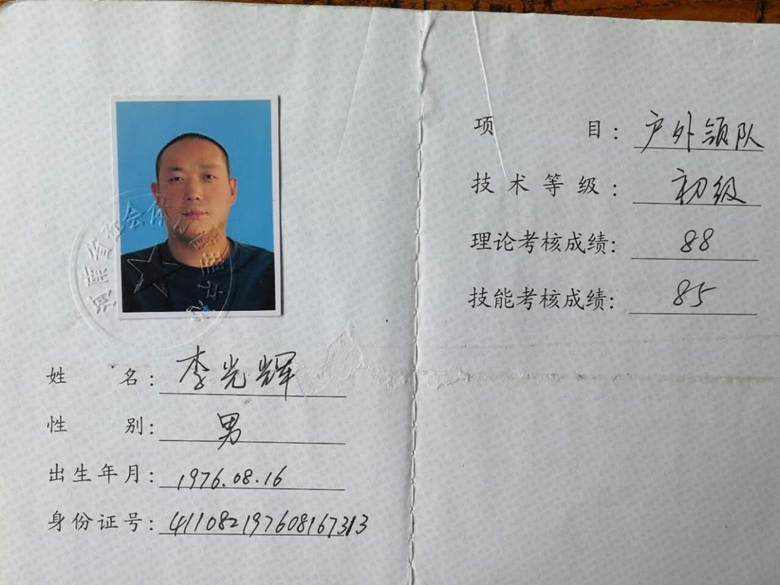 姓名：李光辉
性别：男
出生年月：1976.08.16
身份证号：411082197608167313
项目：户外领队
技术等级：初级
理论考核成绩：88
技能考核成绩：85